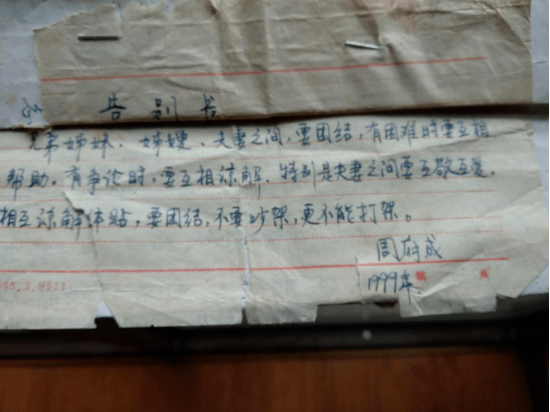 告别书
兄弟姊妹、姊嫂、夫妻之间,要团结,有困难时要互相
帮助。有争论时,要互相谅解.特别是夫妻之间要互敬互爱,
相互谅解体贴,要团结,不要吵架,更不能打架。
周府成
1999年